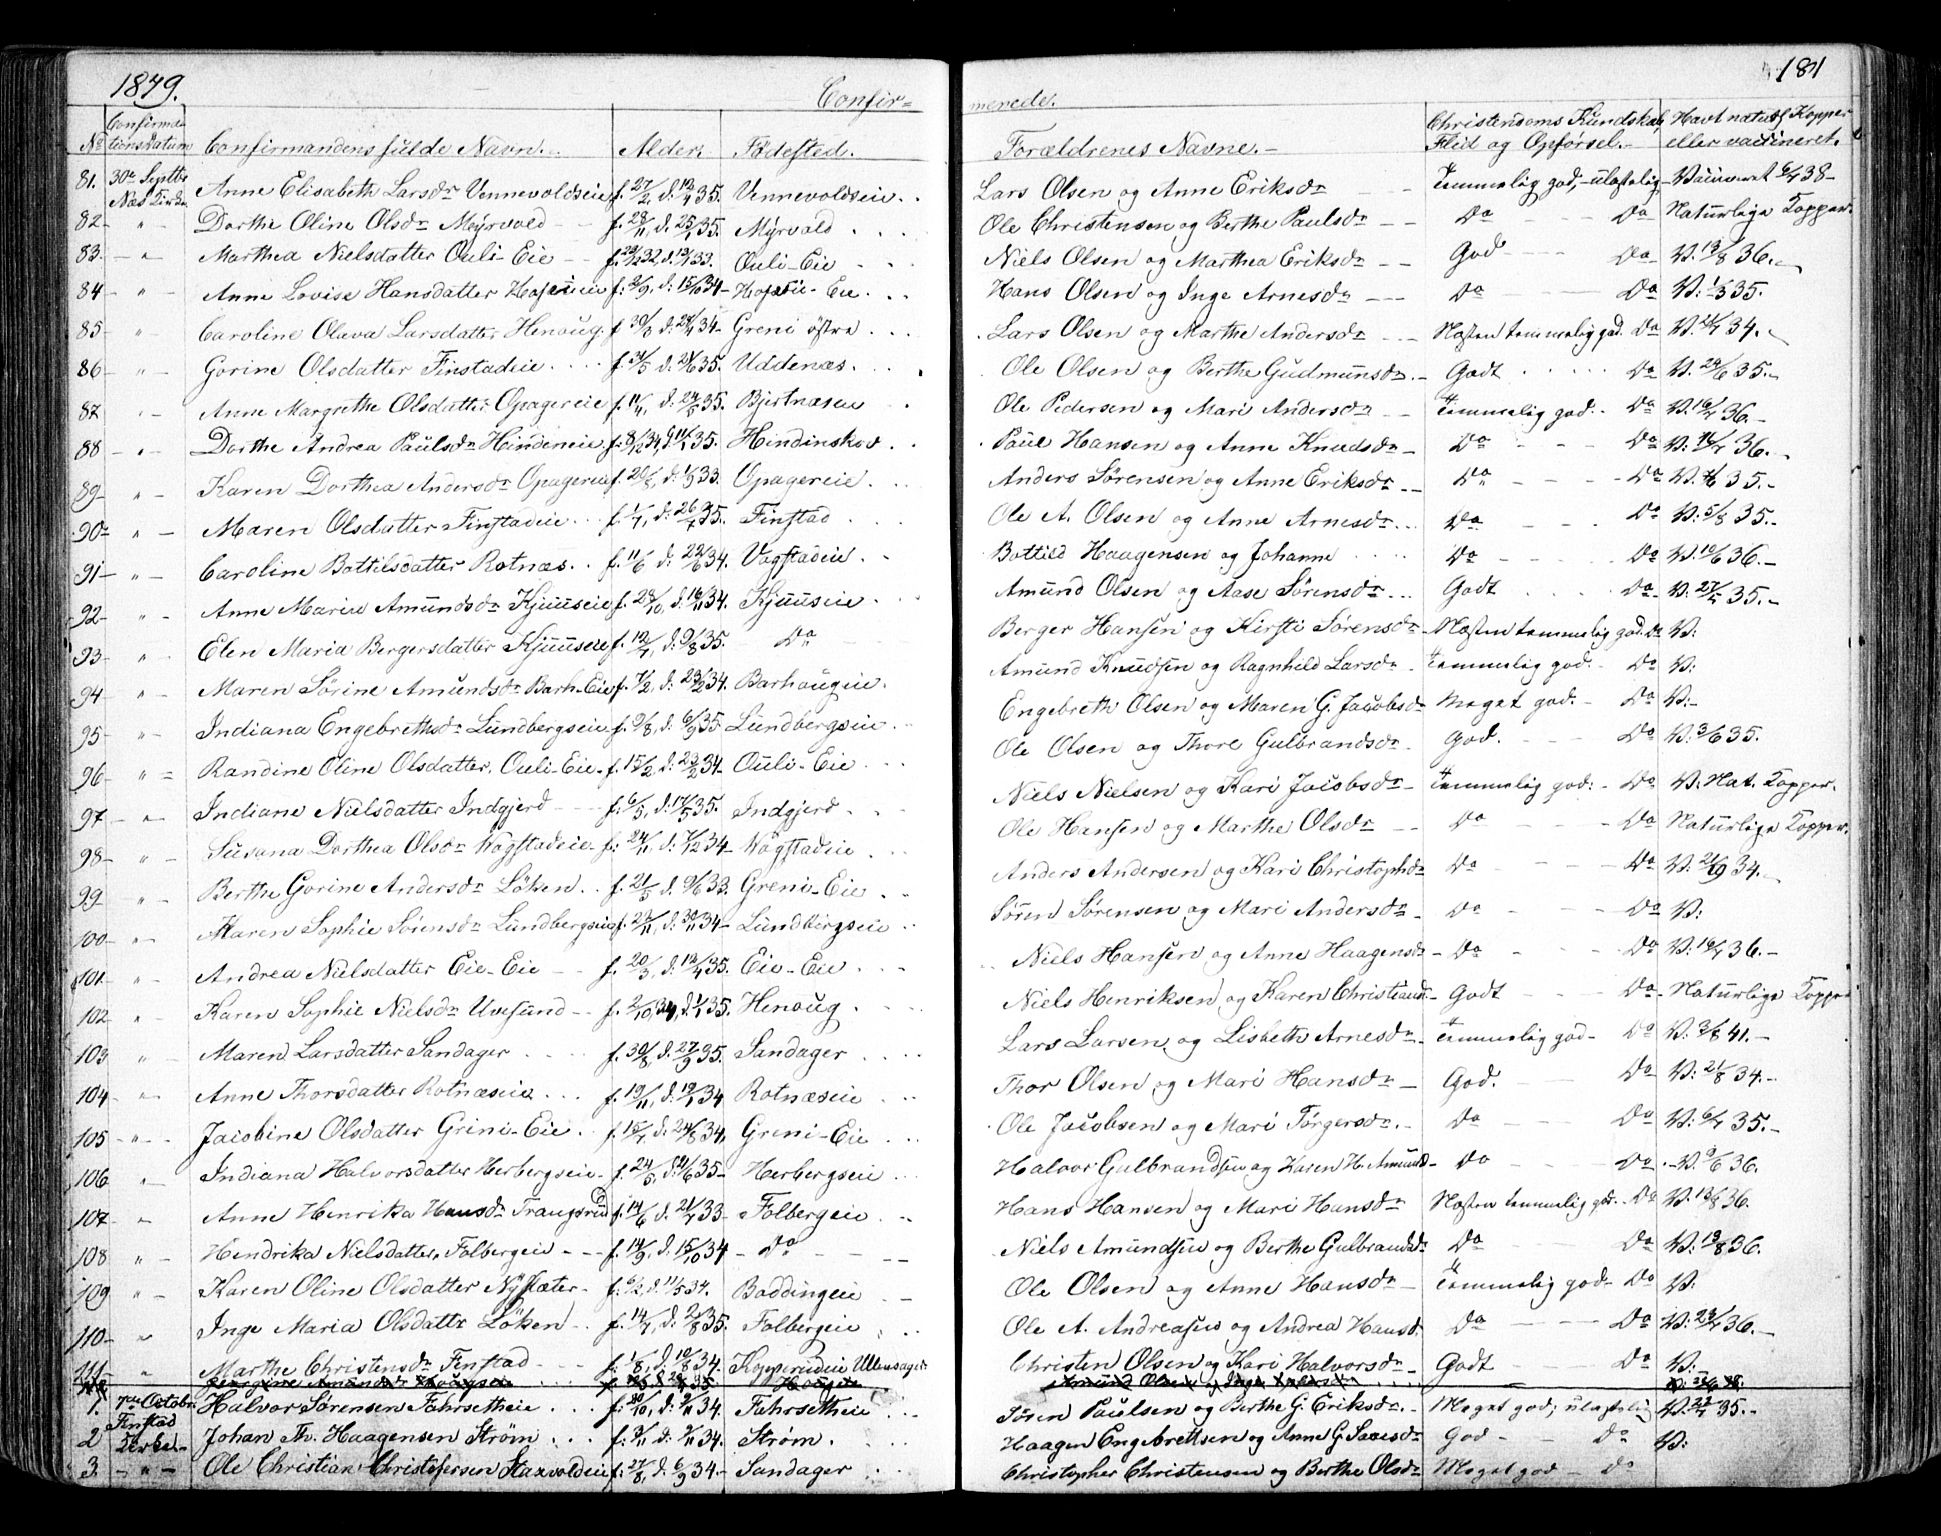 1849.
Confir=
merede.
181
No
Confirmationsdatum
Confirmandens fulde Navn.
Alder.
Fødested.
Forældrenes Navne.
Christendoms Kundskab, Flid og Opførsel.
Havt naturl. Kopper eller vaccineret.
81. 30te Septbr Næs Kirke Anne Elisabeth Larsdr Vennevoldseie f. 27/2 d. 12/4 35. Vennevoldseie Lars Olsen og Anne Eriksdr Temmelig god, ulastelig Vaccineret 38
82 " Dorthe Oline Olsdr Myrvold f. 28/11, d. 25/1 35. Myrvold Ole Christensen og Berthe Paulsdr Do Do Naturlige Kopper.
83. " Marthea Nielsdatter Ouli-Eie Ouli-Eie Niels Olsen og Marthea Eriksdr God Do V. 13/8 36.
84 " Anne Lovise Hansdatter Hans Olsen og Inge Arnesdr Do Do V:
85 " Caroline Olava Larsdatter Henoug. f. 30/3 d. 34 Greni østre Lars Olsen og Marthe Andersdr Næsten temmelig god. Do V. 34.
86 " Gorine Olsdatter Finstadeie f. 31/5 d. 35. Uddenæs. Ole Olsen og Berthe Gudmunsdr. Godt Do V. 24/6 35.
87 " Anne Margrethe Olsdatter Opagereie 35. Ole Pedersen og Mari Andersdr Temmelig god. Do V. 16/7 36.
88 " Dorthe Andrea Paulsdr Hindeneie f. 8/12 34, d. 11/1 35. Hindinskov Paul Hansen og Anne Knudsdr Do Do V: 36.
89 " Karen Dorthea Andersdr Opagereie 33. Opagereie. Anders Sørensen og Anne Eriksdr Do Do V. 35.
90 " Maren Olsdatter Finstadeie f. 1/7, d. 26/7 35. Finstad Ole A. Olsen og Anne Arnesdr Do Do V: 5/8 35.
91 " Caroline Bottilsdatter Rotnæs. f. 11/6 d. 34. Vagstadeie Bottild Haagensen og Johanne Do Do V. 36.
92 " Anne Marie Amundsdr Kjuuseie f. 28/10, d. 16/11 34. Kjuuseie Amund Olsen og Aase Sørensdr Godt Do V. 35.
93 " Elen Maria Bergersdatter Kjuuseie f. 12/7, d. 9/8 35. Do Berger Hansen og Kirsti Sørensdr Næsten temmelig god. Do V:
94 " Maren Sørine Amundsdr Barh-Eie 34. Barhougeie. Amund Knudsen og Ragnhild Larsdr Temmelig god. Do V:
95 " Indiana Engebrethsdr Lundbergseie 35 Lundbergseie Engebreth Olsen og Maren G. Jacobsdr Meget god. Do V:
96 " Randine Oline Olsdatter, Ouli-Eie f. 15/2, d. 23/2 34 Ouli-Eie Ole Olsen og Thore Gulbrandsdr God. Do V: 3/6 35.
97 " Indiane Nielsdatter Indgjerd f. 6/5, d. 17/5 35. Indgjerd Niels Nielsen og Kari Jacobsdr Temmelig god: Do V: Nat. Kopper.
98 " Susana Dorthea Olsdr Vagstadeie 34 Vagstadeie Ole Hansen og Marthe Olsdr Do Do Naturlige Kopper.
99 " Berthe Gorine Andersdr Løken f. 21/5 d. 9/6 33. Greni-Eie Anders Andersen og Kari Christophdr Do Do V. 34.
100 " Maren Sophie Sørensdr Lundbergseie 34 Lundbergseie Søren Sørensen og Mari Andersdr Do Do V:
101. " Andrea Nielsdatter Eie-Eie f. 20/3, d. 35. Eie-Eie Niels Hansen og Anne Haagensdr Do Do V: 36.
102 " Karen Sophie Nielsdr Uvesund f. 2/10 34, d. 1/1 35. Henoug Niels Henriksen og Karen Christiansd. Godt Do Naturlige Kopper
103 " Maren Larsdatter Sandager f. 30/8, d. 27/9 35. Sandager Lars Larsen og Lisbeth Arnesdr Temmelig god Do V. 3/8 41.
104 " Anne Thorsdatter Rotnæseie f. 19/11, 34 Rotnæseie Thor Olsen og Mari Hansdr God. Do V: 21/8 34.
105 " Jacobine Olsdatter Grini-Eie f. 15/7, d. 24/8 34, Greni-Eie Ole Jacobsen og Mari Torgersdr. Do Do V: 6/7 35.
106 " Indiana Halvorsdatter Herbergseie f. 24/5, 35 Herbergseie Halvor Gulbrandsen og Karen H. Amunds Do Do V. 9/6 36.
107 " Anne Henrika Hansdr Traugsrud f. 14/6 d. 21/7 33 Folbergeie Hans Hansen og Mari Hansdr Næsten temmelig god. Do V. 13/8 36.
108 " Hendrika Nielsdatter, Folbergeie f. 14/9, d. 15/10 34 Do Niels Amundsen og Berthe Gulbrandsdr Do Do V. 13/8 36.
109 " Karen Oline Olsdatter Nysæter f. 6/2, d. 11/5 34. Boddingeie Ole Olsen og Anne Hansdr Temmelig god Do V:
110 " Inge Maria Olsdattr Løken f. 14/7, d. 2/8 35. Folbergeie Ole A. Andreasen og Andrea Hansd. Do Do V: 36.
111 " Marthe Christensdr Finstad f. 1/8, d. 10/8 34. Kopperudeie Ullensager Christen Olsen og Kari Halvorsdr Godt Do V:
1. 7de Octobr Finstad Kirke Halvor Sørensen Fahrsetheie 34. Fahrsetheie Søren Paulsen og Berthe G. Eriksdr. Meget god; ulastelig V. 35.
2 Johan Th. Haagensen Strøm 34. Strøm. Haagen Engebrettsen og Anne G. God Do V:
3. " Ole Christian Christofersen f. 27/8, d. 6/9 34 Sandager Christopher Christensen og Berthe Olsdr Meget god Do